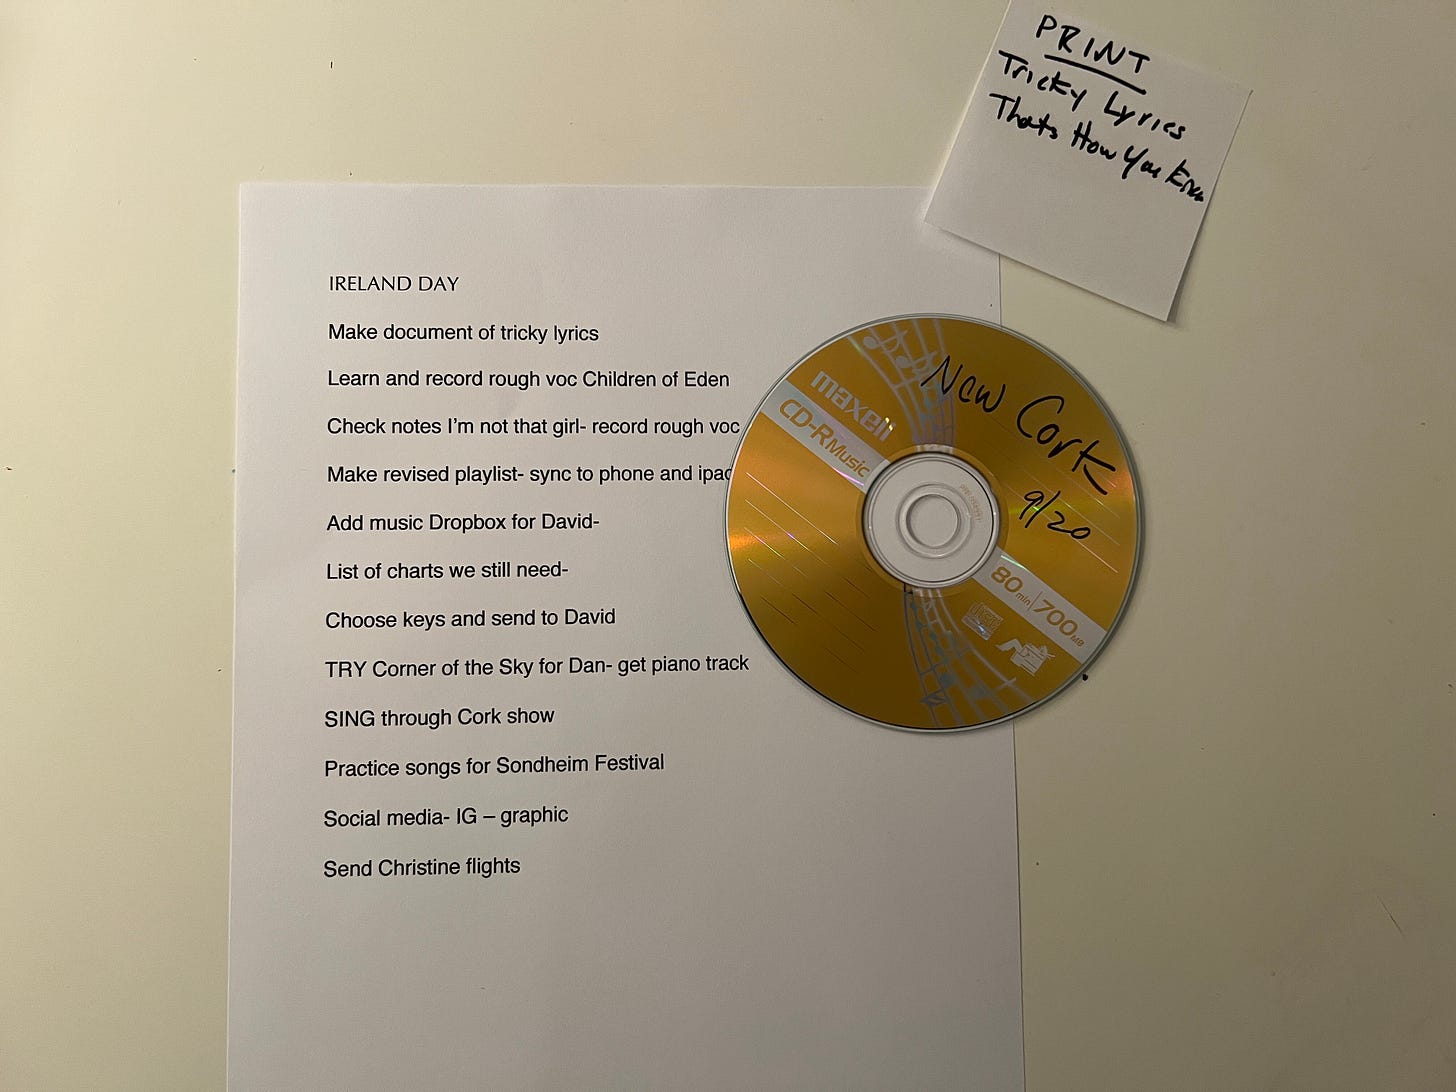 PRINT
Tricky Lyrics
Thats How You Know
IRELAND DAY
Make document of tricky lyrics
Learn and record rough voc Children of Eden
Check notes I'm not that girl- record rough voc
Make revised playlist- sync to phone and ipad
Add music Dropbox for David-
List of charts we still need-
Choose keys and send to David
TRY Corner of the Sky for Dan- get piano track
SING through Cork show
Practice songs for Sondheim Festival
Social media- IG – graphic
Send Christine flights
maxell
CD-R Music
New Cork
9/20
80min/700MB